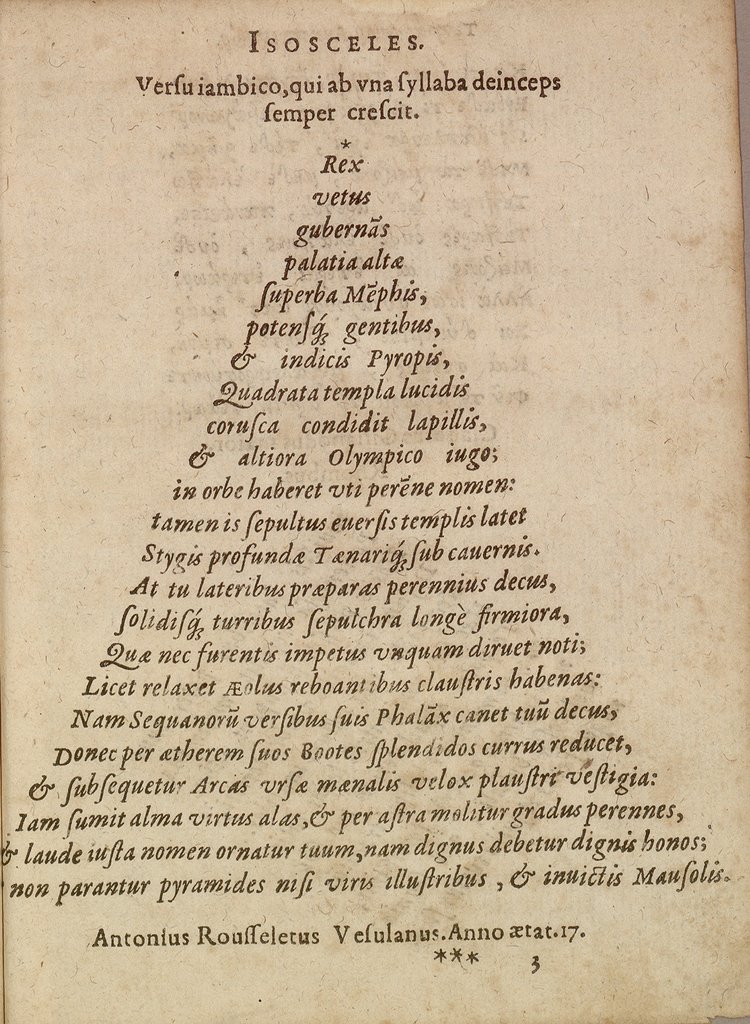 ISOSCELES.
Verſu iambico,qui ab vna ſyllaba deinceps
ſemper creſcit.
*
Rex
vetus
gubernãs
palatia altæ
ſuperba Mẽphis,
potenſq́; gentibus,
& indicis Pyropis,
Quadrata templa lucidis
coruſca condidit lapillis,
& altiora Olympico iugo;
in orbe haberet vti perẽne nomen:
tamen is ſepultus euerſis templis latet
Stygis profundæ Tænariq́; ſub cauernis.
At tu lateribus præparas perennius decus,
ſolidiſq́; turribus ſepulchra longè firmiora,
Quæ nec furentis impetus vnquam diruet noti;
Licet relaxet Æolus reboantibus clauſtris habenas:
Nam Sequanorũ verſibus ſuis Phalãx canet tuũ decus,
Donec per ætherem ſuos Bootes ſplendidos currus reducet,
& ſubſequetur Arcas vrſæ mænalis velox plauſtri veſtigia:
Iam ſumit alma virtus alas,& per aſtra molitur gradus perennes,
& laude iuſta nomen ornatur tuum,nam dignus debetur dignis honos;
non parantur pyramides niſi viris illuſtribus , & inuictis Mauſolis.
Antonius Rouſſeletus Veſulanus.Anno ætat.17.
*** 3